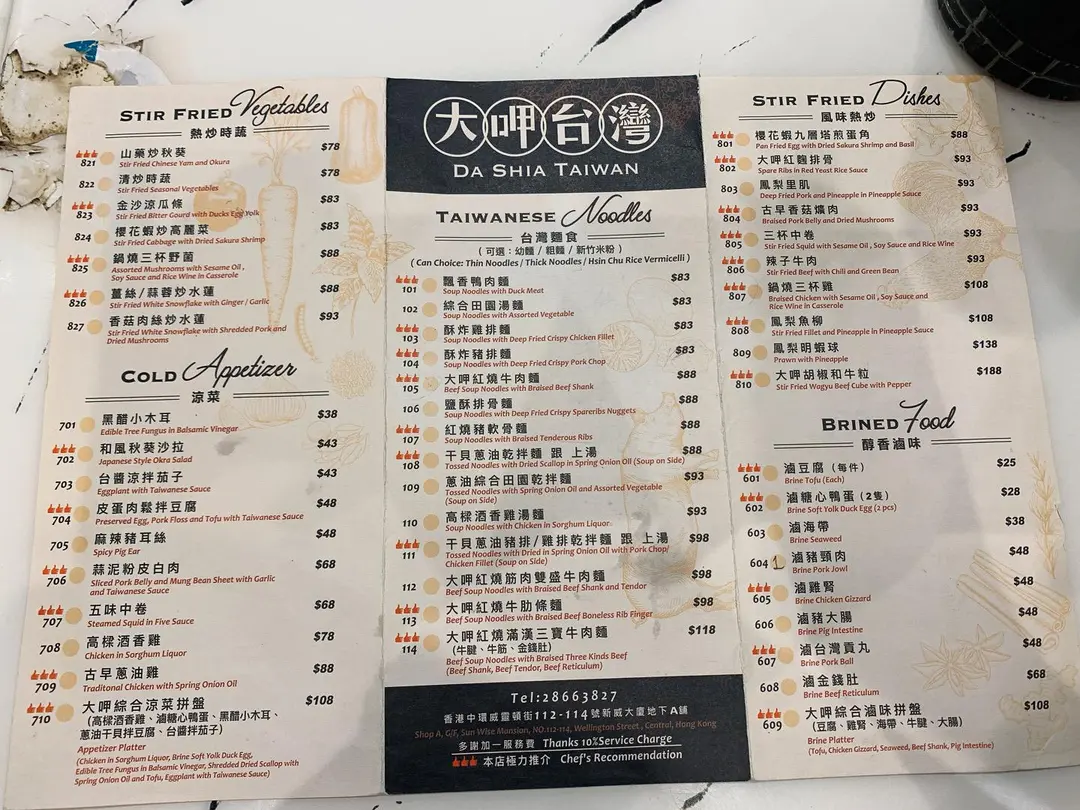 STIR FRIED Vegetables
熱炒時蔬
821 山藥炒秋葵 $78
Stir Fried Chinese Yam and Okura
822 清炒時蔬 $78
Stir Fried Seasonal Vegetables
823 金沙涼瓜條 $83
Stir Fried Bitter Gourd with Ducks Egg Yolk
824 櫻花蝦炒高麗菜 $83
Stir Fried Cabbage with Dried Sakura Shrimp
825 鍋燒三杯野菌 $88
Assorted Mushrooms with Sesame Oil ,
Soy Sauce and Rice Wine in Casserole
826 薑絲/蒜蓉炒水蓮 $88
Stir Fried White Snowflake with Ginger / Garlic
827 香菇肉絲炒水蓮 $93
Stir Fried White Snowflake with Shredded Pork and
Dried Mushrooms
COLD Appetizer
涼菜
701 黑醋小木耳 $38
Edible Tree Fungus in Balsamic Vinegar
702 和風秋葵沙拉 $43
Japanese Style Okra Salad
703 台醬涼拌茄子 $43
Eggplant with Taiwanese Sauce
704 皮蛋肉鬆拌豆腐 $48
Preserved Egg, Pork Floss and Tofu with Taiwanese Sauce
705 麻辣豬耳絲 $48
Spicy Pig Ear
706 蒜泥粉皮白肉 $68
Sliced Pork Belly and Mung Bean Sheet with Garlic
and Taiwanese Sauce
707 五味中卷 $68
Steamed Squid in Five Sauce
708 高樑酒香雞 $78
Chicken in Sorghum Liquor
709 古早蔥油雞 $88
Traditonal Chicken with Spring Onion Oil
710 大呷綜合涼菜拼盤 $108
(高樑酒香雞、滷糖心鴨蛋、黑醋小木耳、
蔥油干貝拌豆腐、台醬拌茄子)
Appetizer Platter
(Chicken in Sorghum Liquor, Brine Soft Yolk Duck Egg,
Edible Tree Fungus in Balsamic Vinegar, Shredded Dried Scallop with
Spring Onion Oil and Tofu, Eggplant with Taiwanese Sauce)
大呷台灣
DA SHIA TAIWAN
TAIWANESE Noodles
台灣麵食
( 可選：幼麵 / 粗麵 / 新竹米粉 )
( Can Choice: Thin Noodles / Thick Noodles / Hsin Chu Rice Vermicelli )
101 飄香鴨肉麵 $83
Soup Noodles with Duck Meat
102 綜合田園湯麵 $83
Soup Noodles with Assorted Vegetable
103 酥炸雞排麵 $83
Soup Noodles with Deep Fried Crispy Chicken Fillet
104 酥炸豬排麵 $83
Soup Noodles with Deep Fried Crispy Pork Chop
105 大呷紅燒牛肉麵 $88
Beef Soup Noodles with Braised Beef Shank
106 鹽酥排骨麵 $88
Soup Noodles with Deep Fried Crispy Spareribs Nuggets
107 紅燒豬軟骨麵 $88
Soup Noodles with Braised Tenderous Ribs
108 干貝蔥油乾拌麵 跟 上湯 $88
Tossed Noodles with Dried Scallop in Spring Onion Oil (Soup on Side)
109 蔥油綜合田園乾拌麵 $93
Tossed Noodles with Spring Onion Oil and Assorted Vegetable
(Soup on Side)
110 高樑酒香雞湯麵 $93
Soup Noodles with Chicken in Sorghum Liquor
111 干貝蔥油豬排/雞排乾拌麵 跟 上湯 $98
Tossed Noodles with Dried in Spring Onion Oil with Pork Chop/
Chicken Fillet (Soup on Side)
112 大呷紅燒筋肉雙盛牛肉麵 $98
Beef Soup Noodles with Braised Beef Shank and Tendor
113 大呷紅燒牛肋條麵 $98
Beef Soup Noodles with Braised Beef Boneless Rib Finger
114 大呷紅燒滿漢三寶牛肉麵 $118
(牛腱、牛筋、金錢肚)
Beef Soup Noodles with Braised Three Kinds Beef
(Beef Shank, Beef Tendor, Beef Reticulum)
Tel:28663827
香港中環威靈頓街112-114號新威大廈地下A鋪
Shop A, G/F, Sun Wise Mansion, NO.112-114, Wellington Street , Central, Hong Kong
多謝加一服務費 Thanks 10%Service Charge
本店極力推介 Chef's Recommendation
STIR FRIED Dishes
風味熱炒
801 櫻花蝦九層塔煎蛋角 $88
Pan Fried Egg with Dried Sakura Shrimp and Basil
802 大呷紅麴排骨 $93
Spare Ribs in Red Yeast Rice Sauce
803 鳳梨里肌 $93
Deep Fried Pork and Pineapple in Pineapple Sauce
804 古早香菇爌肉 $93
Braised Pork Belly and Dried Mushrooms
805 三杯中卷 $93
Stir Fried Squid with Sesame Oil , Soy Sauce and Rice Wine
806 辣子牛肉 $93
Stir Fried Beef with Chili and Green Bean
807 鍋燒三杯雞 $108
Braised Chicken with Sesame Oil , Soy Sauce and
Rice Wine in Casserole
808 鳳梨魚柳 $108
Stir Fried Fillet and Pineapple in Pineapple Sauce
809 鳳梨明蝦球 $138
Prawn with Pineapple
810 大呷胡椒和牛粒 $188
Stir Fried Wagyu Beef Cube with Pepper
BRINED Food
醇香滷味
601 滷豆腐 (每件) $25
Brine Tofu (Each)
602 滷糖心鴨蛋 (2隻) $28
Brine Soft Yolk Duck Egg (2 pcs)
603 滷海帶 $38
Brine Seaweed
604 1 滷豬頸肉 $48
Brine Pork Jowl
605 滷雞腎 $48
Brine Chicken Gizzard
606 滷豬大腸 $48
Brine Pig Intestine
607 滷台灣貢丸 $48
Brine Pork Ball
608 滷金錢肚 $68
Brine Beef Reticulum
609 大呷綜合滷味拼盤 $108
(豆腐、雞腎、海帶、牛腱、大腸)
Brine Platter
(Tofu, Chicken Gizzard, Seaweed, Beef Shank, Pig Intestine)